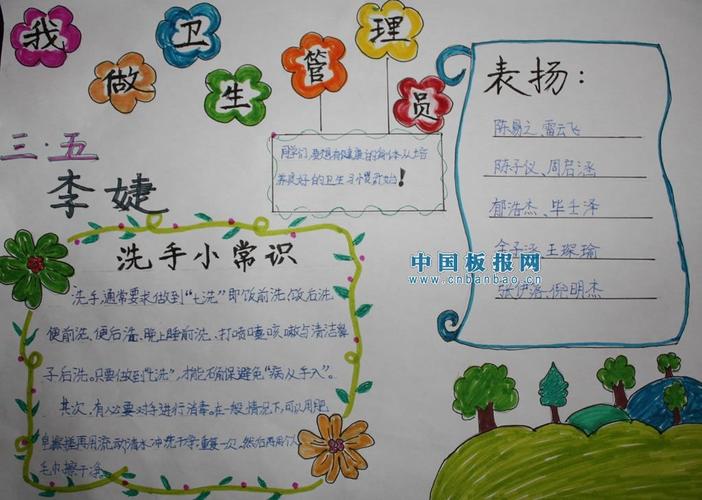 我做卫生管理员
三·五
李婕
同学们,要想有健康的身体从培
养良好的卫生习惯开始!
表扬:
陈易之、雷云飞
陈子仪、周启涵
郁浩杰、毕士泽
金子涵、王琛瑜
张伊洛、倪明杰
中国板报网
www.cnbanbao.cn
洗手小常识
洗手通常要求做到“七洗”即饭前洗、饭后洗
便前洗、便后洗、晚上睡前洗、打喷嚏咳嗽与清洁鼻
子后洗。只要做到“七洗”,才能确保避免“病从手入”。
其次,有必要对手进行消毒。在一般情况下,可以用肥
皂擦搓再用流动清水冲洗干净重复一次,然后再用个人
毛巾擦干净。